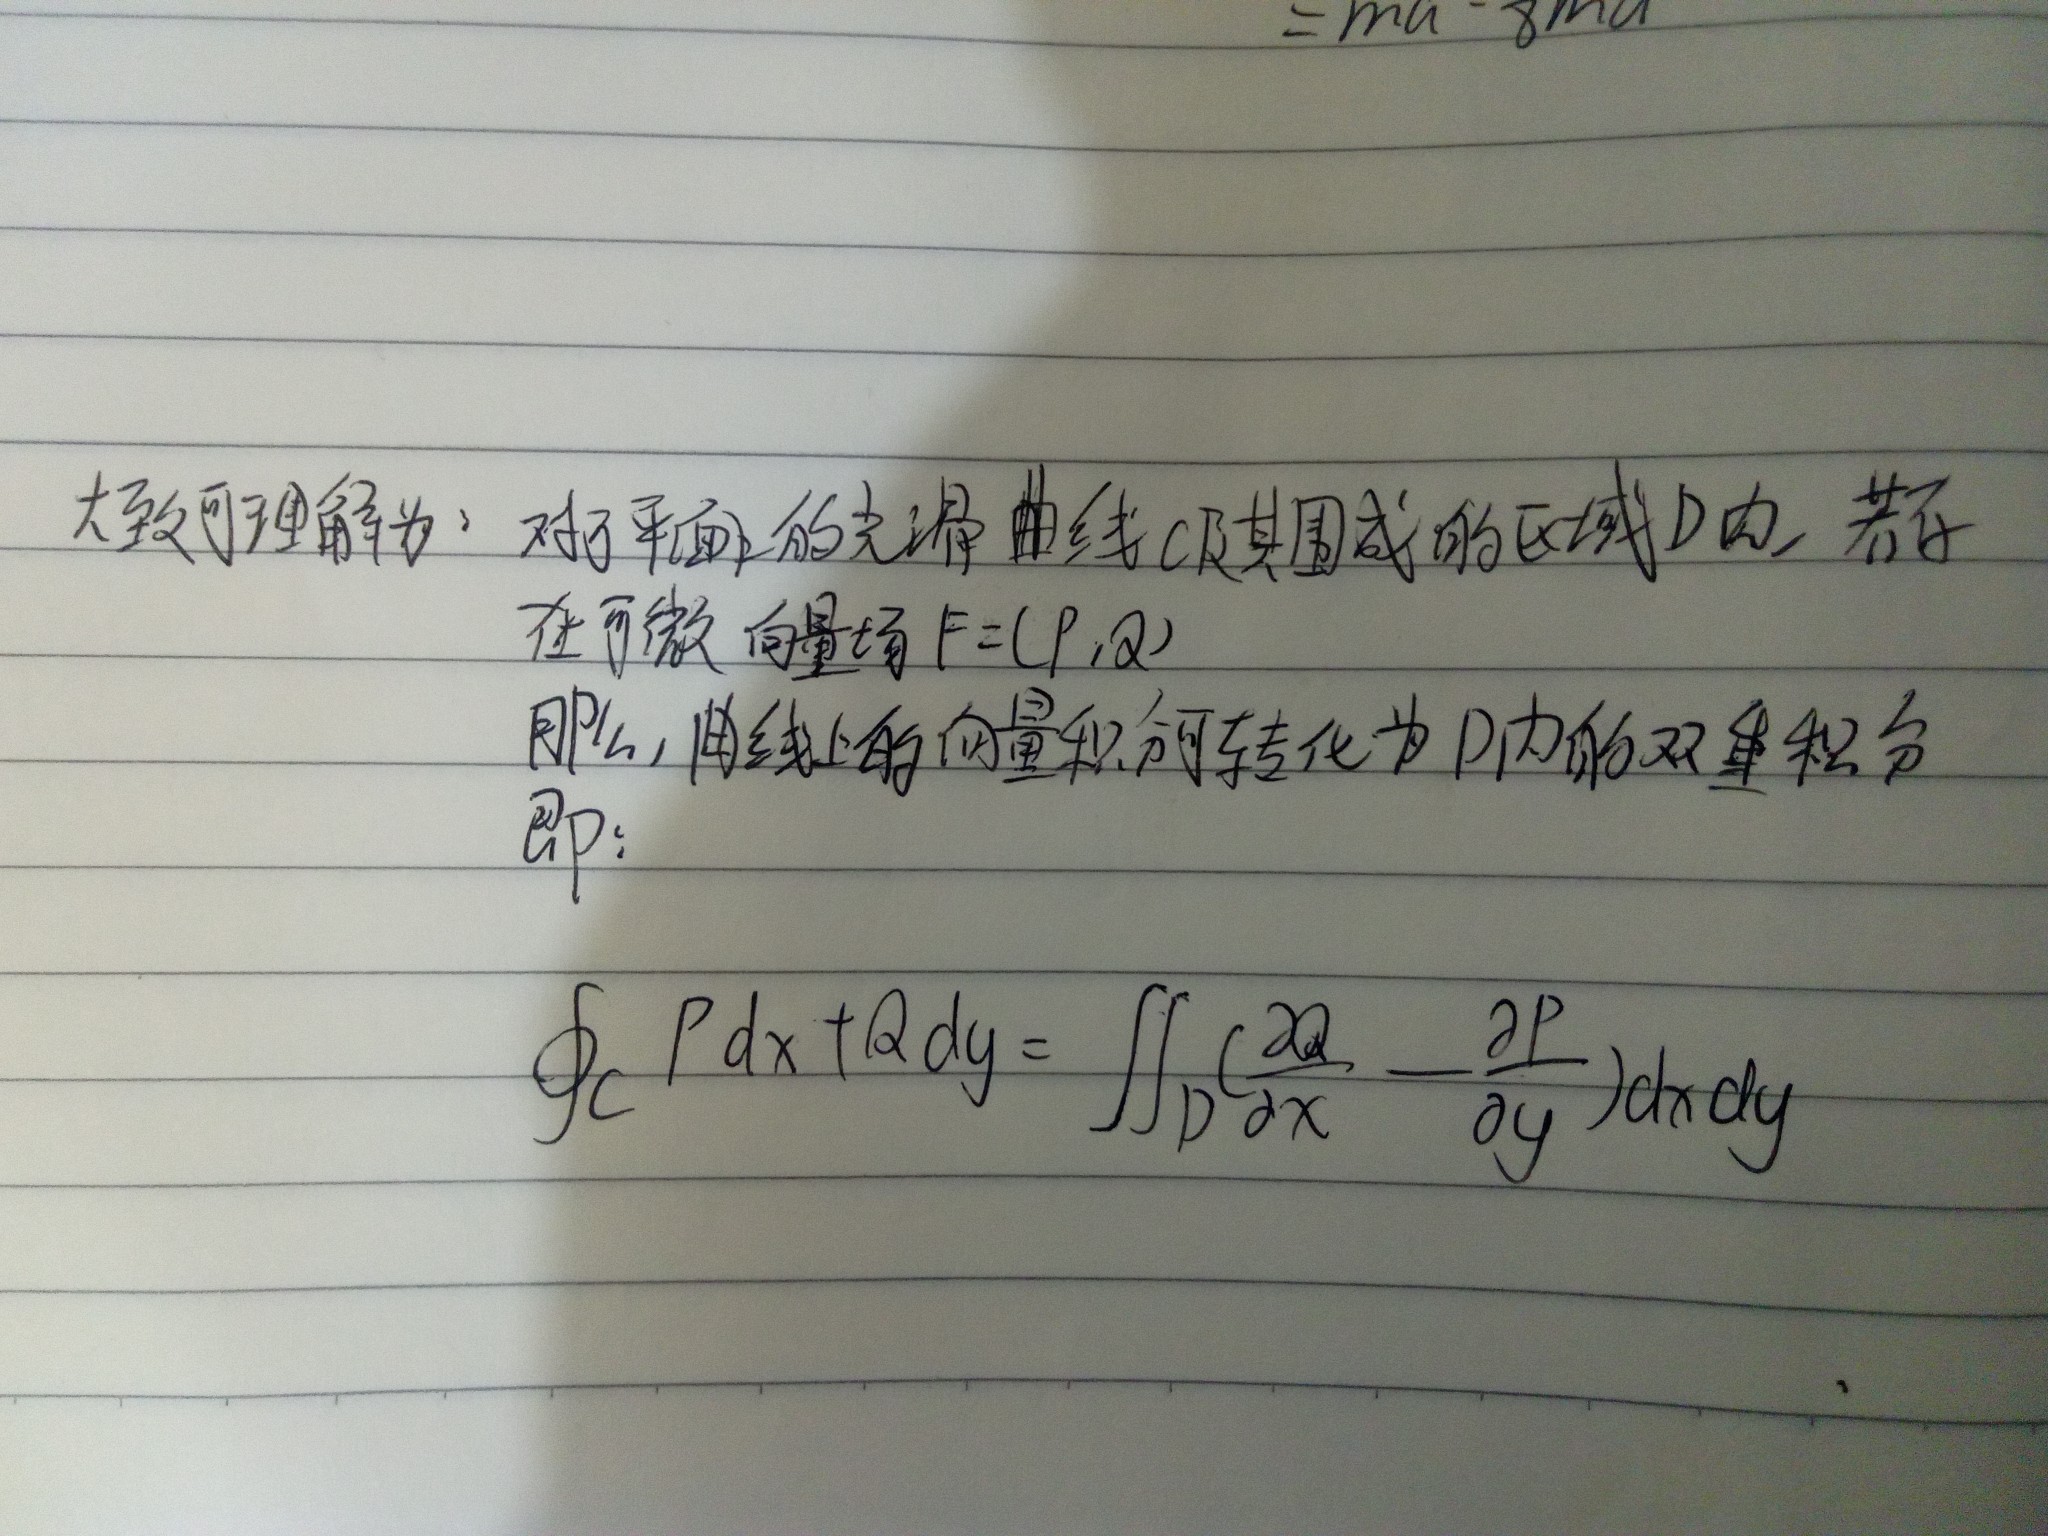 大致可理解为：对于平面上的光滑曲线C及其围成的区域D内，若存
在可微向量场F=(P,Q)
那么,曲线上的向量积分可转化为D内的双重积分
即:
∮_C Pdx+Qdy=∬_D(∂Q/∂x-∂P/∂y)dxdy